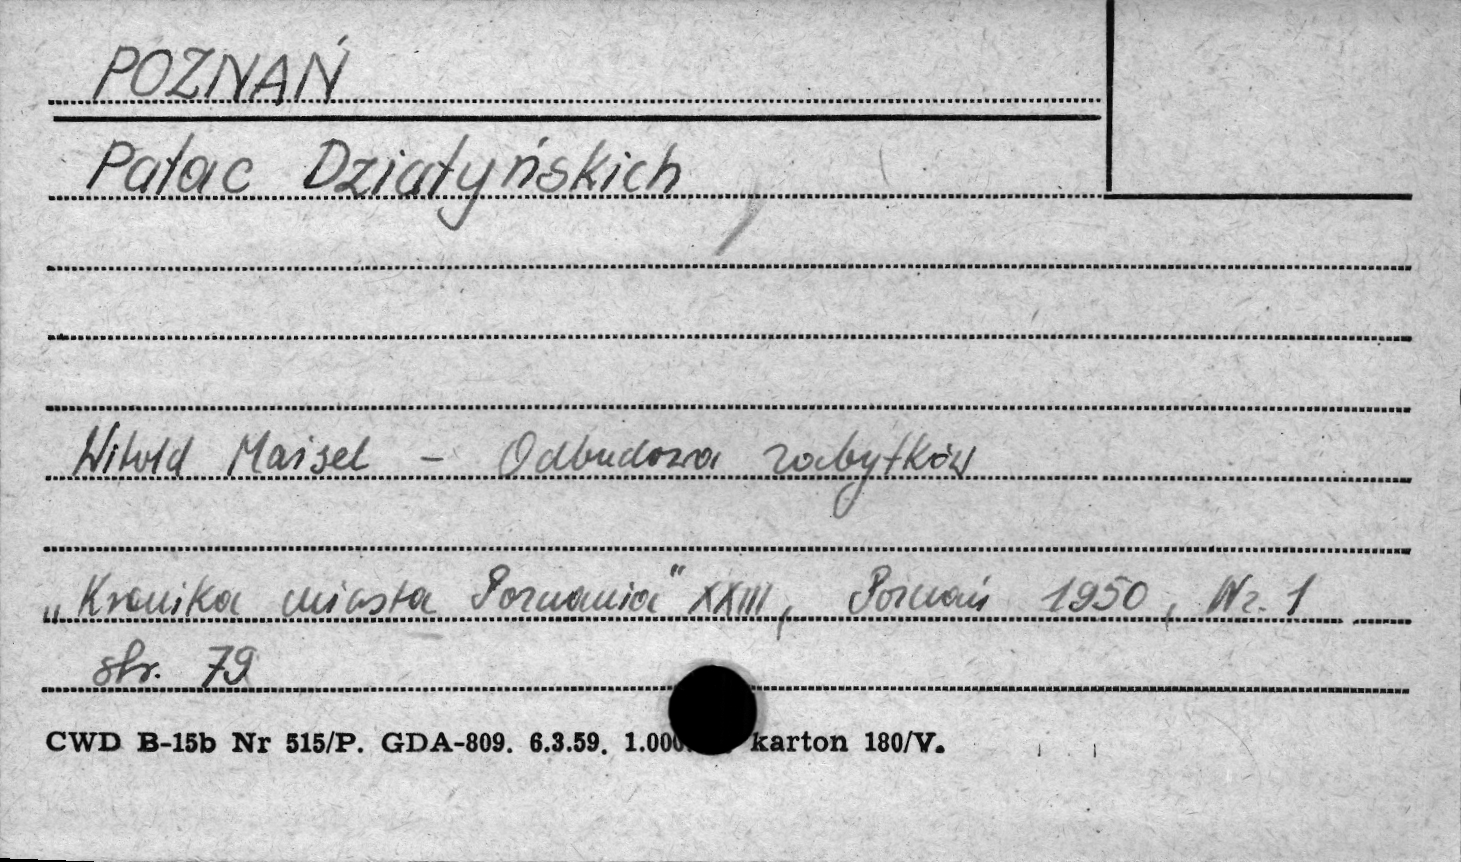 POZNAŃ
Pałac Działyńskich
Witold Maisel - Odbudowa zabytków
„Kronika miasta Poznania" XXIII, Poznań 1950, Nr. 1
str. 79
CWD B-15b Nr 515/P. GDA-809. 6.3.59. karton 180/V.